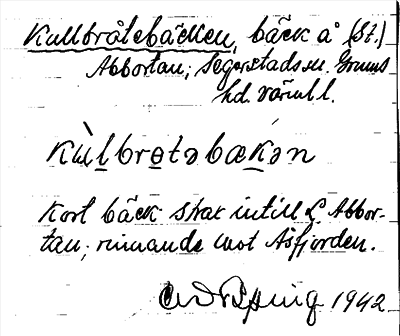 Kullbråtebäcken, bäck å (St.)
Abbortan; Segerstads sn. Grums
hd. Värml.
kùlbrotəbækən
Kort bäck strax intill L. Abbor-
tan; rinnande mot Åsfjorden.
1942